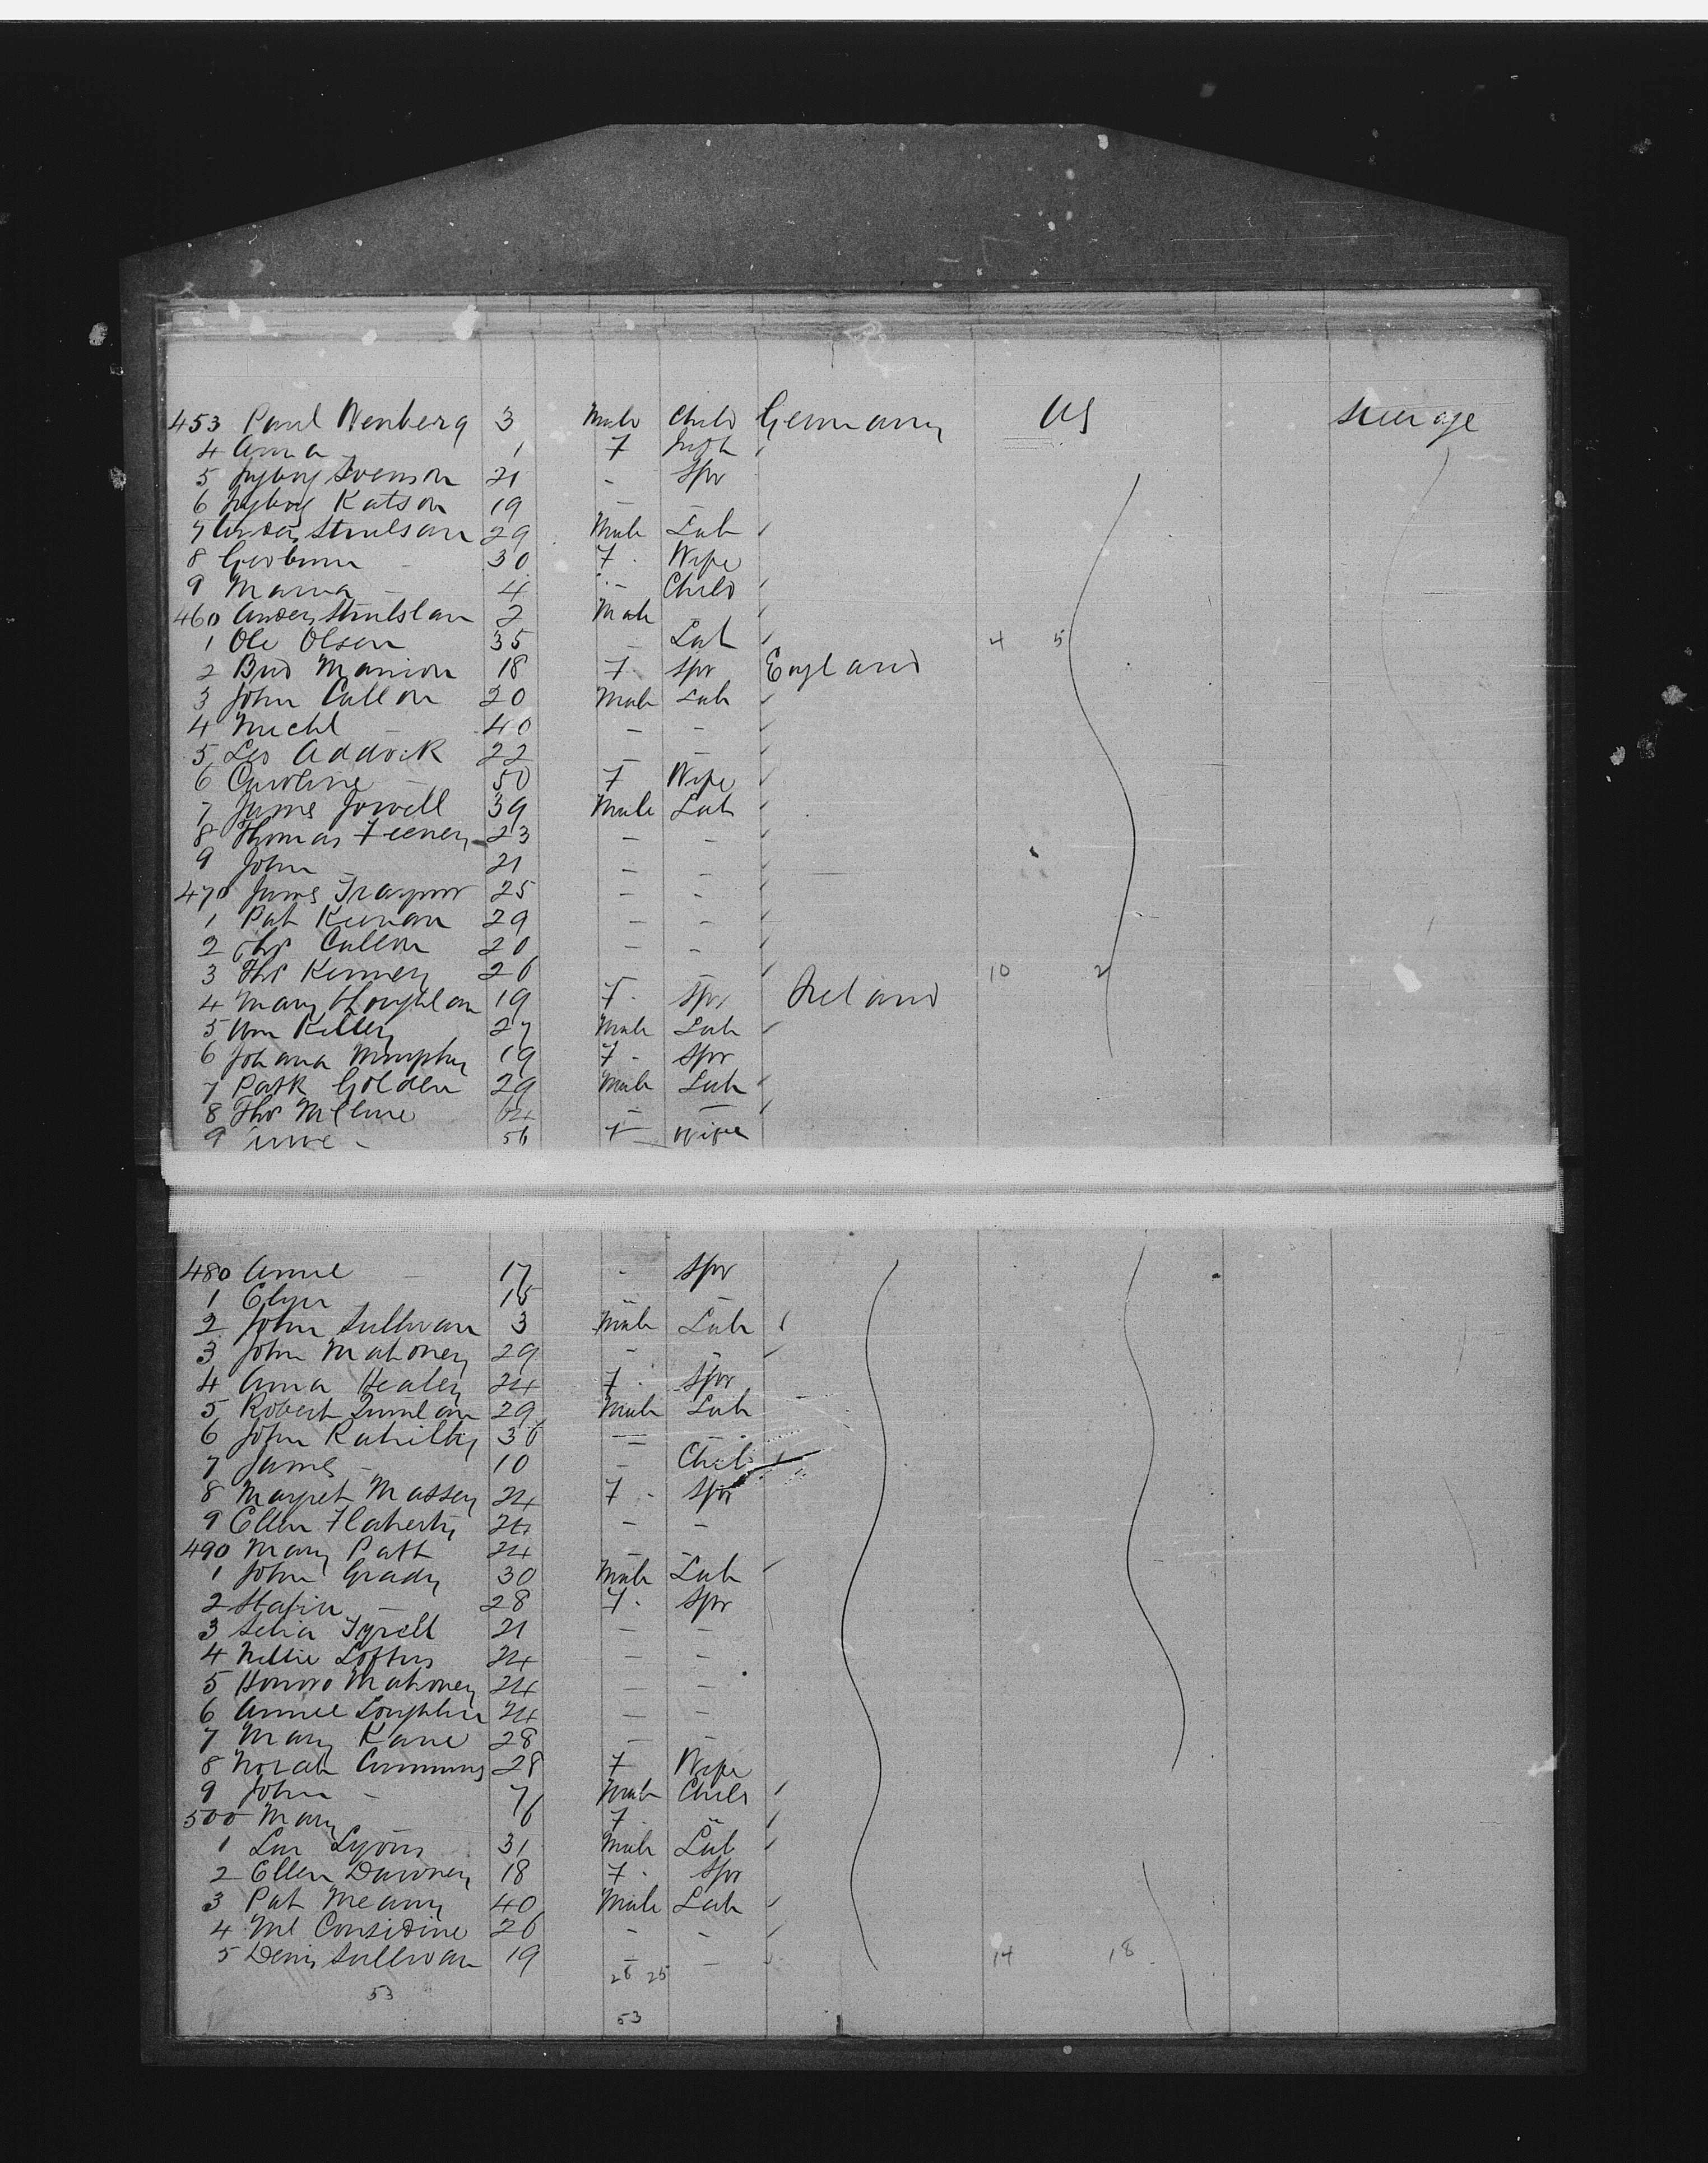 453 Paul Wenberg 3 Male Child Germany US Steerage
4 Anna - 1 F Inft
5 Ingborg Svenson 21 - Spr
6 Ingborg Katson 19 - -
7 Anders 29 Male Lab
8 - 30 F Wife
9 Maria - 4 - Child
460 Anders 2 Male
1 Ole Olsen 35 - Lab 4 5
2 Brid Manion 18 F Spr England
3 John Cullon 20 Male Lab
4 Michl - 40 - -
5 Leo Addock 22 - -
6 Caroline - 50 F Wife
7 James Jowell 39 Male Lab
8 Thomas Feeney 23 - -
9 John - 21 - -
470 James Traynor 25 - -
1 Pat Keenan 29 - -
2 Thos Cullen 20 - -
3 Thos Kenney 26 10 2
4 Mary Houghlan 19 F Spr Ireland
5 Wm Kelley 27 Male Lab
6 Johana Murphy 19 F Spr
7 Patk Golden 29 Male Lab
8 Thos 64 - -
9 - 56 F Wife
480 Annie - 17 - Spr
1 15
2 John Sullivan 3 Male Lab
3 John Mahoney 29 - -
4 Anna Healey 24 F Spr
5 Robert Quinlan 29 Male Lab
6 John 36 -
7 James - 10 - Child
8 Margret Massey 24 F Spr
9 Ellen Flaherty 24 - -
490 Mary Patt 24 - -
1 John Grady 30 Male Lab
2 - 28 F Spr
3 Selia Tyrell 21 - -
4 Nellie Loftus 24 - -
5 Honoro Mahoney 24 - -
6 Annie Loughlin 24 - -
7 Mary Kane 28 - -
8 Norah Cummins 28 F Wife
9 John - 7 Male Child
500 Mary 6 F
1 Lar Lyons 31 Male Lab
2 Ellen Downey 18 F Spr
3 Pat Meany 40 Male Lab
4 Ml Considine 26 - -
5 Denis Sullivan 19 - - 14 18
28 25
53
53